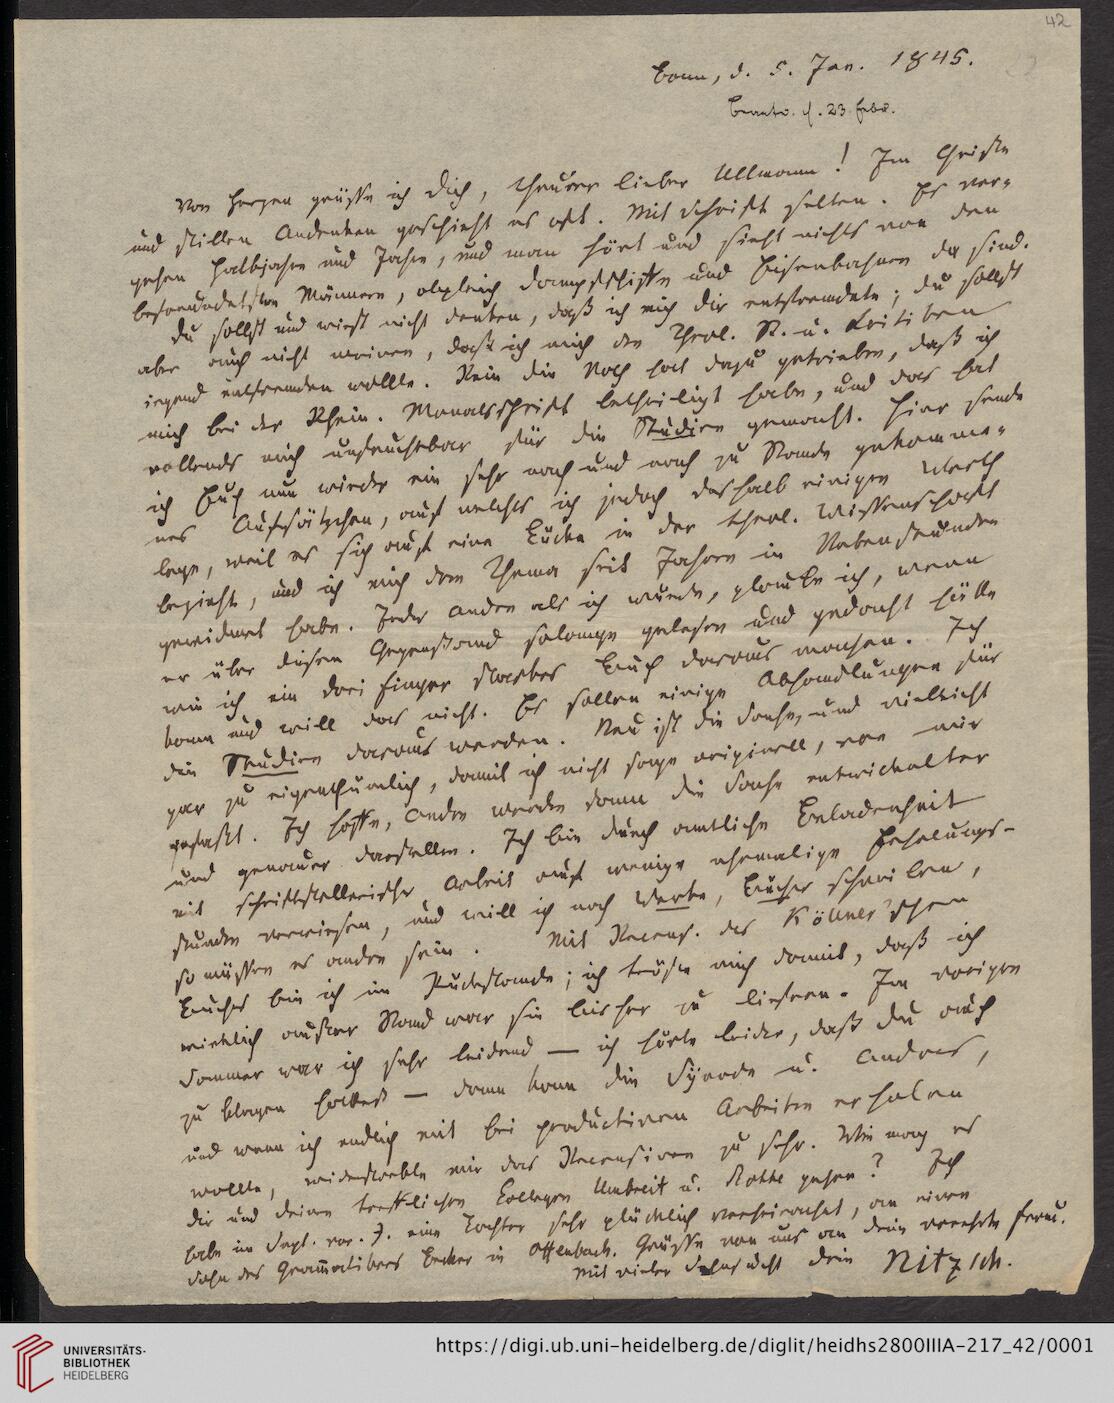 42
Bonn, d. 5. Jan. 1845.
Beantw. d. 23 Febr.
Von Herzen grüsse ich Dich, theurer lieber Ullmann! Im Geiste
und stillen Andenken geschieht es oft. Mit Schrift selten. Es ver-
gehen Halbjahre und Jahre, und man hört und sieht nichts von den
befreundetsten Männern, obgleich Dampfschiffe und Eisenbahnen da sind.
Du sollst und wirst nicht denken, daß ich mich dir entfremdete; du sollst
aber auch nicht meinen, daß ich mich den Theol. St. u. Kritiken
irgend entfremden wollte. Rein die Noth hat dazu getrieben, daß ich
mich bei der Rhein. Monatsschrift betheiligt habe, und das hat
vollends mich unfruchtbar für die Studien gemacht. Hier sende
ich Euch nun wieder ein sehr nach und nach zu Stande gekomme-
nes Aufsätzchen, auf welches ich jedoch deshalb einigen Werth
lege, weil es sich auf eine Lücke in der theol. Wissenschaft
bezieht, und ich mich dem Thema seit Jahren in Nebenstunden
gewidmet habe. Jeder andere als ich würde, glaube ich, wenn
er über diesen Gegenstand solange gelesen und gedacht hätte
wie ich ein drei Finger starkes Buch daraus machen. Ich
kann und will das nicht. Es sollen einige Abhandlungen für
die Studien daraus werden. Neu ist die Sache, und vielleicht
gar zu eigenthümlich, damit ich nicht sage originell, von mir
gefaßt. Ich hoffe, andre werden dann die Sache entwickelter
und genauer darstellen. Ich bin durch amtliche Beladenheit
mit schriftstellerischer Arbeit auf wenige ehemalige Erholungs-
stunden verwiesen, und will ich noch Werke, Bücher schreiben,
so müssen es andre sein. Mit Recens. des Köllner'schen
Buches bin ich im Rückstande; ich tröste mich damit, daß ich
wirklich außer Stand war sie bisher zu liefern. Im vorigen
Sommer war ich sehr leidend — ich hörte leider, daß du auch
zu klagen hattest — dann kam die Synode u. Andres,
und wenn ich endlich mit bei productiven Arbeiten erholen
wollte, widerstrebte mir das Recensiren zu sehr. Wie mag es
dir und deinen trefflichen Collegen Umbreit u. Rothe gehen? Ich
habe im Sept. vor. J. eine Tochter sehr glücklich verheirathet, an einen
Sohn des Gram̄atikers Becker in Offenbach. Grüsse von uns an dein verehrte Frau.
Mit vieler Sehnsucht dein Nitzsch.
UNIVERSITÄTS-
BIBLIOTHEK
HEIDELBERG
https://digi.ub.uni-heidelberg.de/diglit/heidhs2800IIIA-217_42/0001